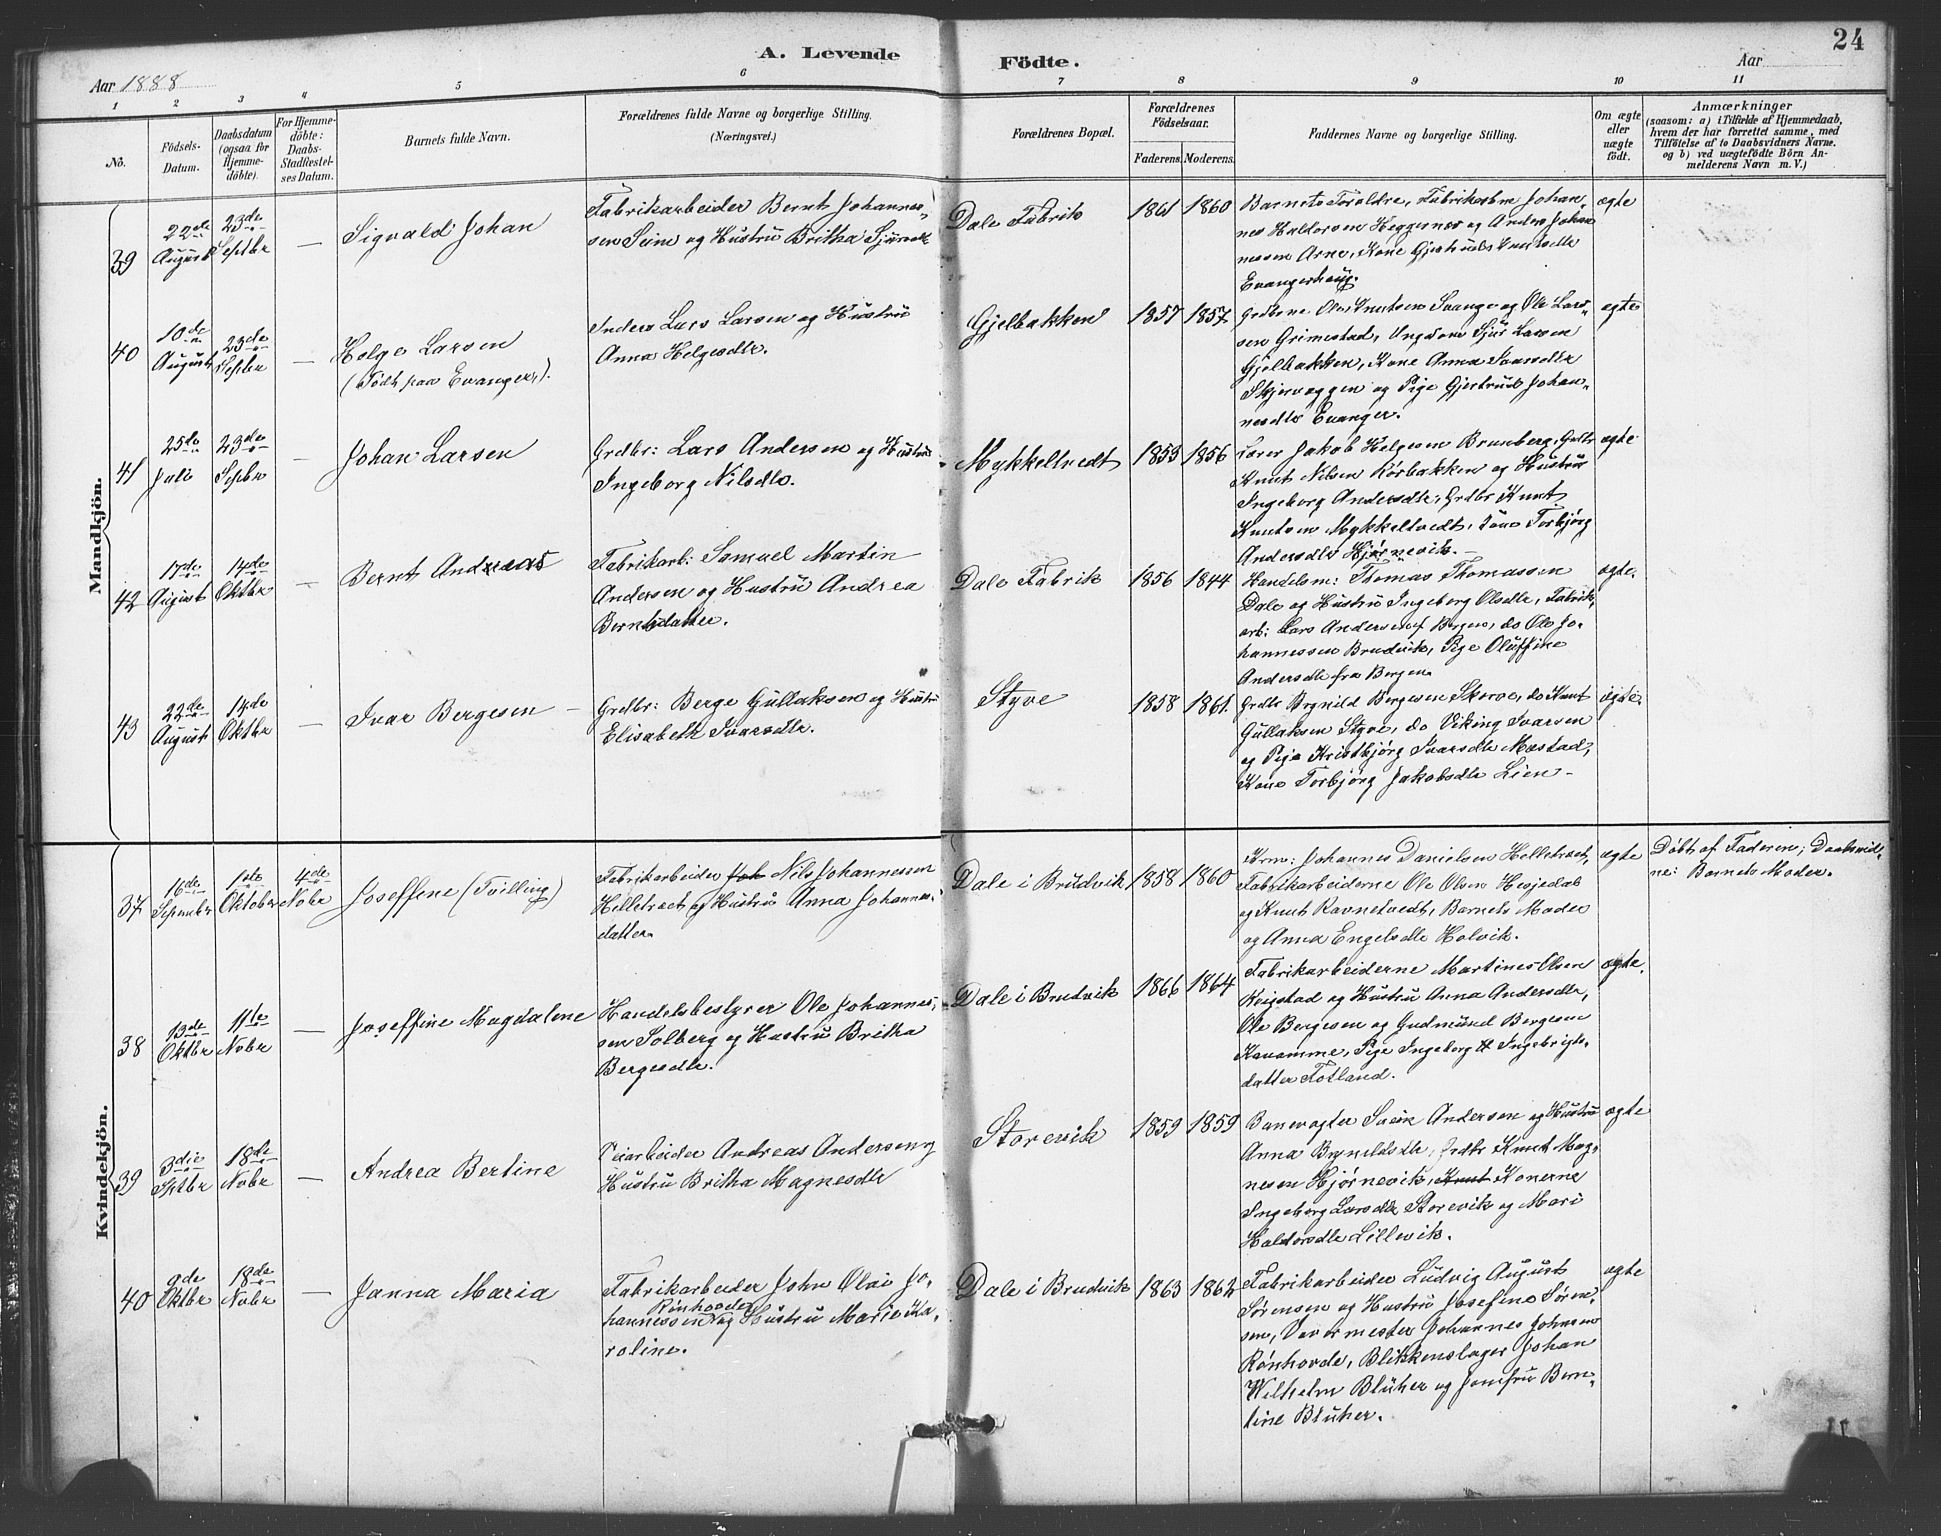 24
A. Levende Födte.
Aar 1888
Aar
1 2 3 4 5 6 7 8 9 10 11
No.
Födsels-
Datum.
Daabsdatum
(ogsaa for
Hjemme-
döbte).
For Hjemme-
döbte:
Daabs-
Stadfæstel-
ses Datum.
Barnets fulde Navn.
Forældrenes fulde Navne og borgerlige Stilling.
(Næringsvei.)
Forældrenes Bopæl.
Forældrenes
Födselsaar.
Faderens. Moderens.
Faddernes Navne og borgerlige Stilling.
Om ægte
eller
uægte
födt.
Anmærkninger
(saasom: a) i Tilfælde af Hjemmedaab,
hvem der har forrettet samme, med
Tilföielse af to Daabsvidners Navne.
og b) ved uægtefödte Börn An-
melderens Navn m. V.)
Mandkjön.
39
22de
August
23de
Septbr
—
Sigvald Johan
Fabrikarbeider Bernt Johannes-
sen Seim og Hustru Britha Sjursdtr
Dale Fabrik
1861 1860
Barnets Forældre, Fabrikarbm Johan-
nes Haldorsen Heggernæs og Anders Johan
nessen Arne, Kone Gjertrud Knutsdtr
Evangerhaug.
ægte
40
10de
August
23de
Septbr
—
Helge Larsen
(Födt paa Evanger).
Inders Lars Larsen og Hustru
Anna Helgesdtr.
Gjelbakken
1857 1857
Grdbrne Ole Knutsen Evanger og Ole Lars-
sen Grimestad, Ungdom Sjur Larsen
Gjelbakken, Kone Anna Ivarsdtr
Skjerveggen og Pige Gjertrud Johan-
nesdtr Evanger.
ægte
41
25de
Juli
23de
Septbr
—
Johan Larsen
Grdbr: Lars Andersen og Hustru
Ingeborg Nilsdtr.
Mykkeltvedt
1853 1856
Lærer Jakob Helgesen Brunberg, Grdbr
Knut Nilsen Rörbakken og Hustru
Ingeborg Andersdtr, Grdbr Knut
Knutsen Mykkeltvedt, Kone Torbjörg
Andersdtr Hjörnevik.—
ægte
42
17de
August
14de
Oktbr
—
Bernt Andreas
Fabrikarb: Samuel Martin
Andersen og Hustru Andrea
Berntsdatter.
Dale Fabrik
1856 1844
Handelsm: Thomas Thomassen
Dale og Hustru Ingeborg Olsdtr, Fabrik-
arb: Lars Andersen af Bergen, do Ole Jo-
hannessen Brudvik, Pige Oluffine
Andersdtr fra Bergen
ægte.
43
22de
August
14de
Oktbr
—
Ivar Bergesen —
Grdbr: Berge Gullaksen og Hustru
Elisabeth Ivarsdtr.
Styve
1858 1861.
Grdbr Brynild Bergesen Skorve, do Knut
Gullaksen Styve, do Viking Ivarsen
og Pige Kristbjörg Ivarsdtr Mæstad,
Kone Torbjörg Jakobsdtr Lien—
ægte.
Kvindekjön.
37
16de
September
1ste
Oktober
4de
Nobr
Joseffene (Tvilling)
Fabrikarbeider Joh Nils Johannessen
Helletræet og Hustru Anna Johannes-
datter.
Dale i Brudvik
1858 1860
Krm: Johannes Danielsen Helletræet,
Fabrikarbeiderne Ole Olsen Hesjedal
og Knut Ravnetvedt, Barnets Moder
og Anna Engelsdtr Holvik.
ægte
Döbt af Faderen; Daabsvid-
ne: Barnets Moder.
38
13de
Oktbr
11te
Nobr
—
Joseffine Magdalene
Handelsbestyrer Ole Johannes-
sen Solberg og Hustru Britha
Bergesdtr.
Dale i Brudvik
1866 1864
Fabrikarbeiderne Martines Olsen
Kvigstad og Hustru Anna Andersdtr,
Ole Bergesen og Gudmund Bergesen
Kvamme, Pige Ingeborg Ingebrigts-
datter Fotland.
ægte.
39
3die
Oktbr
18de
Nobr
—
Andrea Bertine
Veiarbeider Andreas Andersen og
Hustru Britha Magnesdtr
Storevik
1859 1859
Banevogter Andersen og Hustru
Anna Bryneldsdtr, Grdbr Knut Mag-
nesen Hjørnevik, Knut Konerne
Ingeborg Larsdtr Storevik og Mari
Haldorsdtr Lillevik.
ægte
40
9de
Oktbr
18de
Nobr
—
Janna Maria
Fabrikarbeider John Olai Jo-
hannessen Rönhovde og Hustru Marie Ka-
roline.
Dale i Brudvik
1863 1862
Fabrikarbeider Ludvig August
Sörensen og Hustru Josefine Sören-
sen, Vævermester Johannes Johnsen
Rönhovde, Blikkenslager Johan
Wilhelm Blüher og Jomfru Bern-
tine Blüher.
ægte